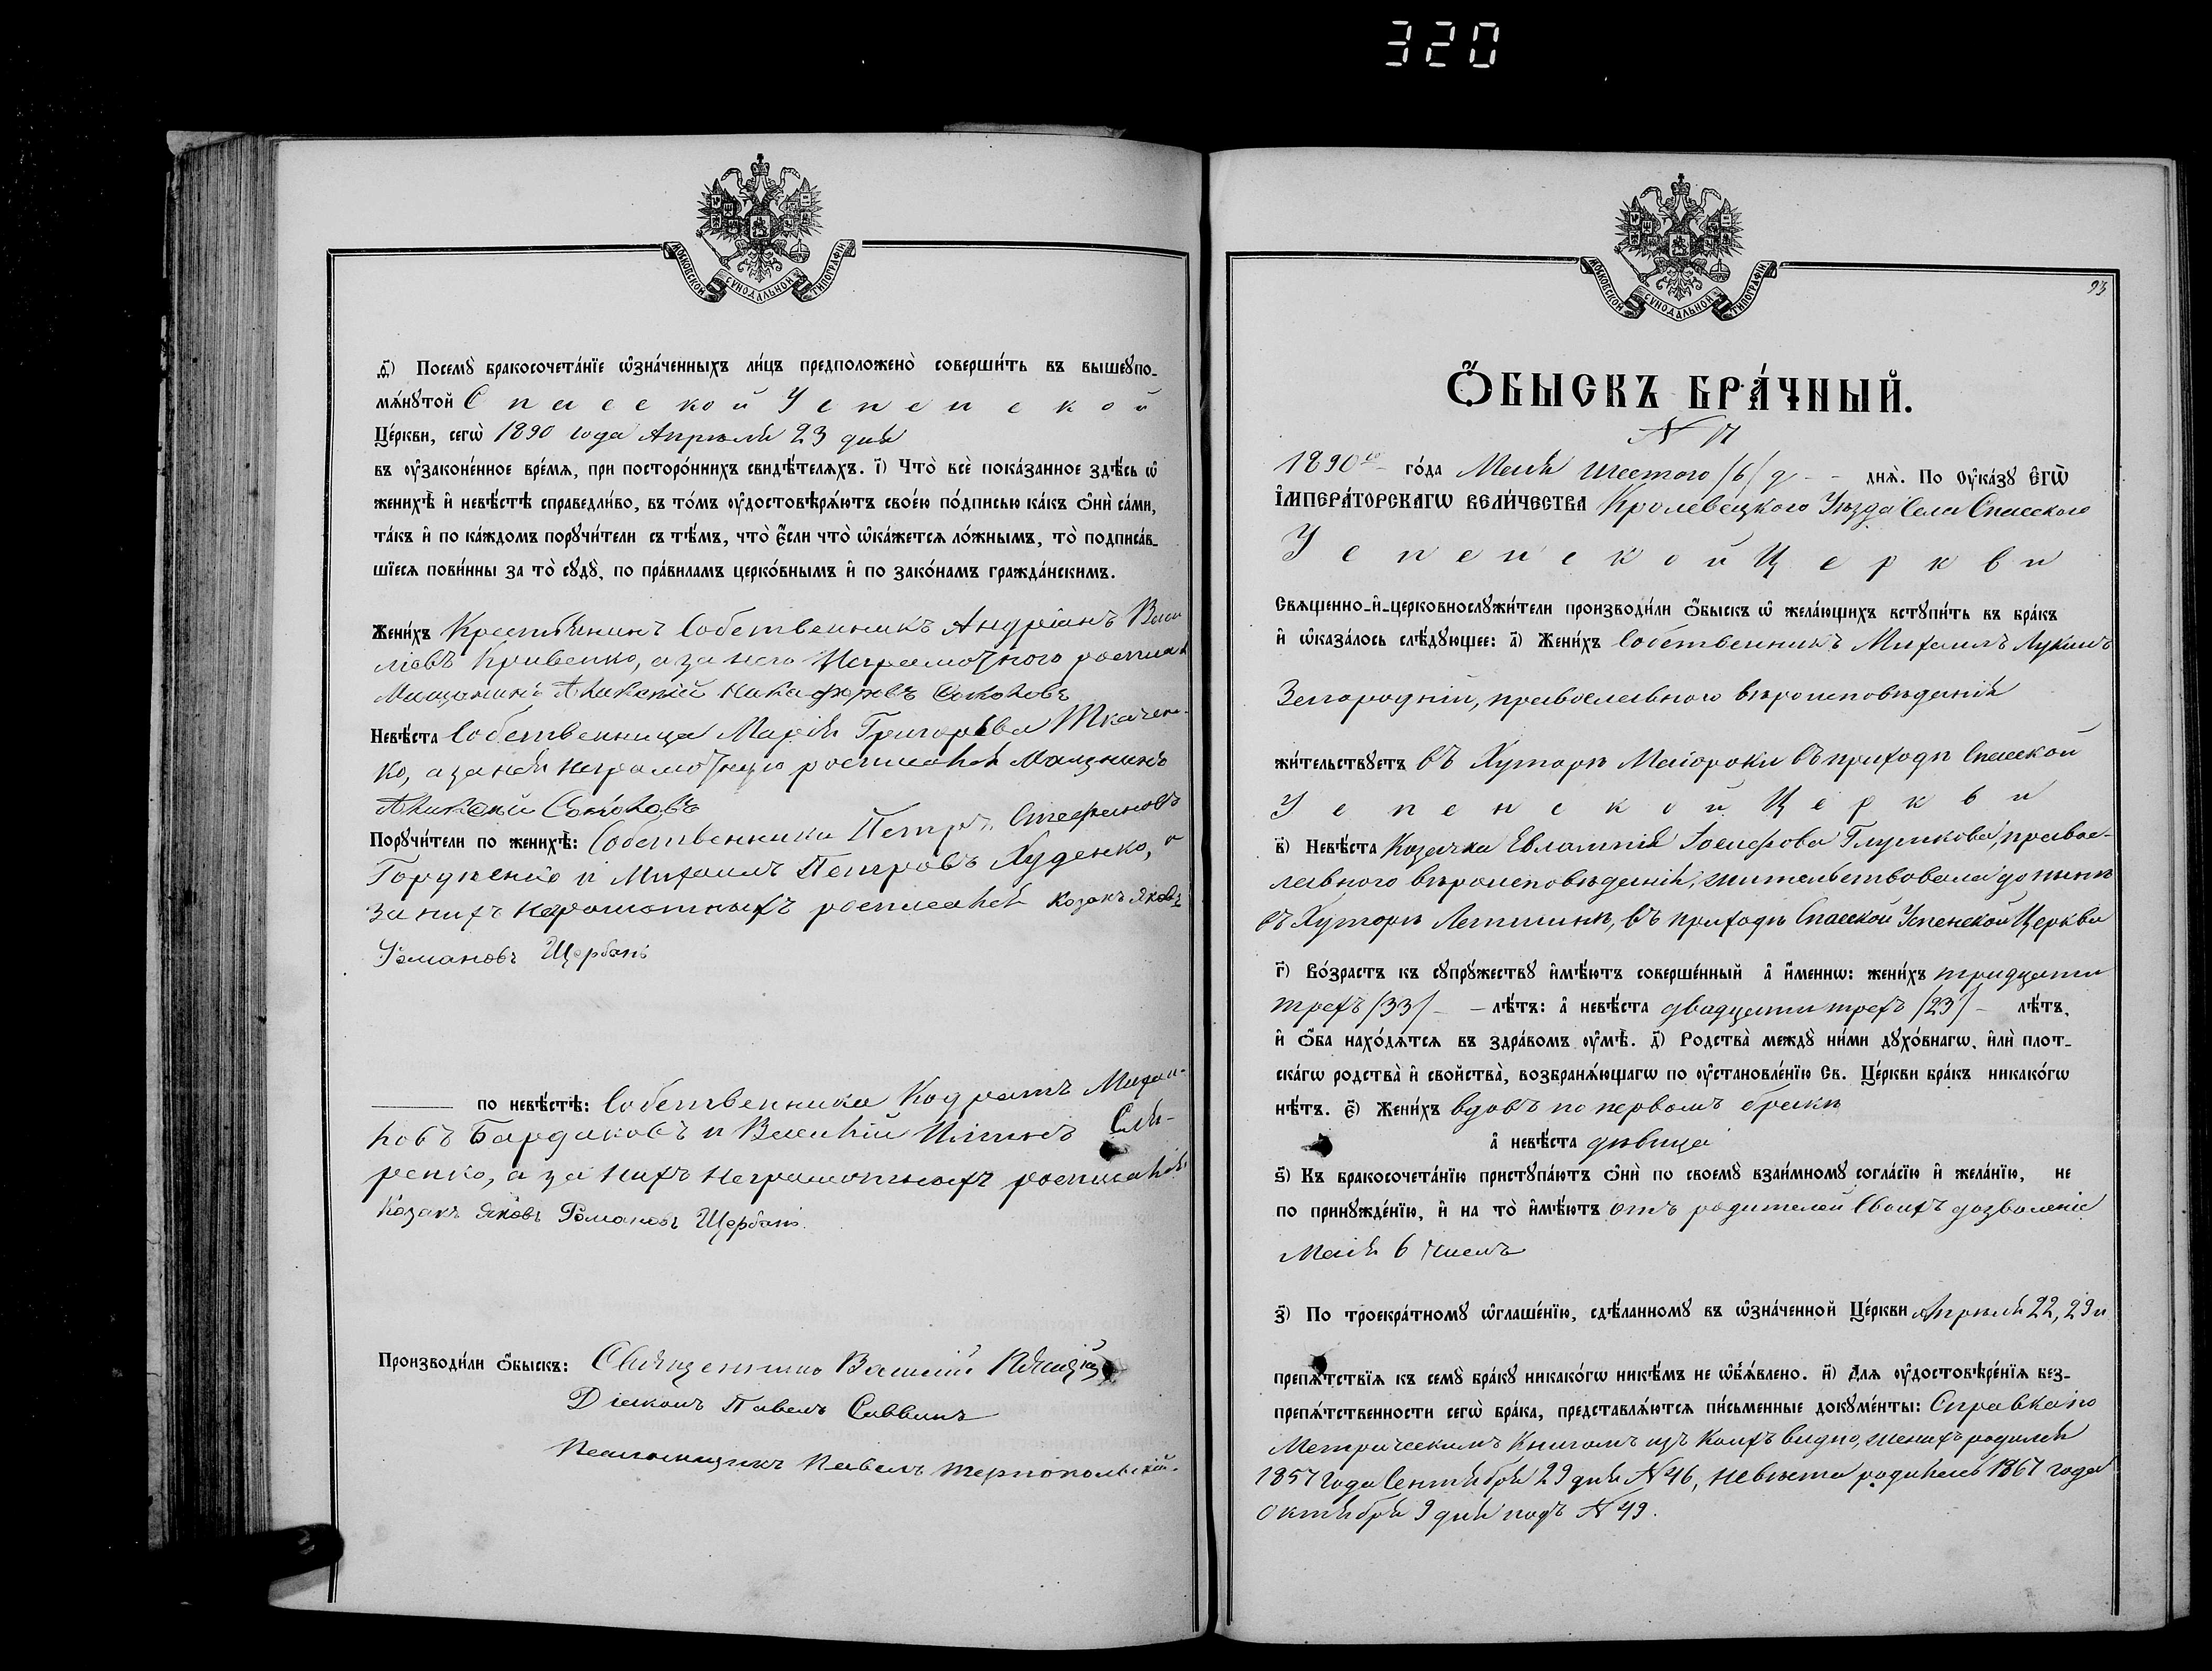 320
МОСКОВСКОЙ СѴНОДАЛЬНОЙ ТИПОГРАФІИ
ѳ҃) Посемꙋ̀ бракосочета́нїе ѡ҆зна́ченныхъ ли́цъ предположено̀ соверши́ть въ вышеꙋпо-
мѧ́нꙋтой Спасской Успенской
Це́ркви, сегѡ̀ 1890 года Апрѣля 23 дня
въ ᲂу҆законе́нное вре́мѧ, при посторо́ннихъ свидѣ́телѧхъ. і҃) Что̀ всѐ пока́занное здѣ́сь ѡ҆
женихѣ̀ и҆ невѣ́стѣ справедли́во, въ то́мъ ᲂу҆достовѣрѧ́ютъ свое́ю по́дписью ка́къ ѻ҆нѝ са́ми,
та́къ и҆ по ка́ждомъ порꙋчи́тели съ тѣ́мъ, что̀ є҆́сли что̀ ѡ҆ка́жетсѧ ло́жнымъ, то̀ подписа́в-
шїесѧ пови́нны за то̀ сꙋдꙋ̀, по пра́виламъ церко́внымъ и҆ по зако́намъ гражда́нскимъ.
Жени́хъ Крестьянинъ Собственникъ Андріанъ Васи
ліевъ Кривенко, а за него неграмотного росписал
Мищанинъ Алексѣй Никифоровъ Соколовъ
Невѣ́ста Собственница Марія Григорьева Ткачен-
ко, а за нея неграмотную росписался Мищнинъ
Алексѣй Соколовъ
Порꙋчи́тели по женихѣ̀: Собственники Петръ Стефановъ
и Михаилъ Петровъ Худенко, а
за нихъ неграмотныхъ росписался Козакъ Яковъ
Романовъ Щербань
по невѣ́стѣ: Собственники Кодратъ Михаи-
ловъ Бардаковъ и Василій Слю-
ренко, а за нихъ неграмотныхъ росписался
Козакъ Яковъ Романовъ Щербань.
Производи́ли ѻ҆́быскъ: Священникъ Василій
Діаконъ Павелъ Саввинъ
Псаломщикъ Павелъ Тернопольскій.
МОСКОВСКОЙ СѴНОДАЛЬНОЙ ТИПОГРАФІИ
93
Ѻ҆́БЫСКЪ БРА́ЧНЫЙ.
N 17
1890го го́да Мая шестого /6/ д дна̀. По Оу҆ка́зꙋ Є҆гѡ̀
І҆мпера́торскагѡ вели́чества Кролевецкого Уѣзда Села Спасского
Успенской Церкви
Свѧщенно-и҆-церковнослꙋжи́тели производи́ли ѻ҆́быскъ ѡ҆ жела́ющихъ встꙋпи́ть въ бра́къ
и҆ ѡ҆каза́лось слѣ́дꙋющее: а҃) Жени́хъ Собственникъ Михаилъ Лукинъ
Загородній, православного вѣроисповѣданія
жи́тельствꙋетъ въ Хуторѣ Маіорокѣ въ приходѣ Спасской
Успенской Церкви
в҃) Невѣ́ста Козачка Евлампія Іосифова Глушкова, правос-
лавного вѣроисповѣданія, жительствовала до нынѣ
въ Хуторѣ Летшинѣ, въ приходѣ Спасской Успенской Церкви
г҃) Во́зрастъ къ сꙋпрꙋ́жествꙋ и҆мѣ́ютъ соверше́нный а҆ и҆́менно: жени́хъ тридцати
трехъ /33/ лѣ́тъ: а҆ невѣ́ста двадцати трехъ /23/ лѣ́тъ,
и҆ ѻ҆́ба нахо́дѧтсѧ въ здра́вомъ ᲂу҆мѣ̀. д҃) Родства̀ междꙋ̀ ни́ми дꙋхо́внагѡ, и҆лѝ плот-
ска́гѡ родства̀ и҆ свойства̀, возбранѧ́ющагѡ по ᲂу҆становле́нїю Св. Це́ркви бра́къ никако́гѡ
нѣ́тъ. є҃) Жени́хъ вдовъ по первомъ бракѣ
а҆ невѣ́ста дѣвица
ѕ҃) Къ бракосочета́нїю пристꙋпа́ютъ ѻ҆нѝ по своемꙋ̀ взаи́мномꙋ согла́сїю и҆ жела́нїю, не
по принꙋжде́нїю, и҆ на то̀ и҆мѣ́ютъ отъ родителей своихъ дозволеніе
Мая 6 числъ
з҃) По троекра́тномꙋ ѡ҆глаше́нїю, сдѣ́ланномꙋ въ ѡ҆зна́ченной Це́ркви Апрѣля 22, 29 и
препѧ́тствїѧ къ семꙋ̀ бра́кꙋ никако́гѡ никѣ́мъ не ѡ҆бъѧ́влено. и҃) Для ᲂу҆достовѣре́нїѧ без-
препѧ́тственности сегѡ̀ бра́ка, представлѧ́ютсѧ пи́сьменные докꙋме́нты: Справка по
Метрическимъ Книгамъ изъ коихъ видно, женихъ родился
1857 года Сентября 29 дня N 46, невѣста родилась 1867 года
Октября 9 дня подъ N 49.